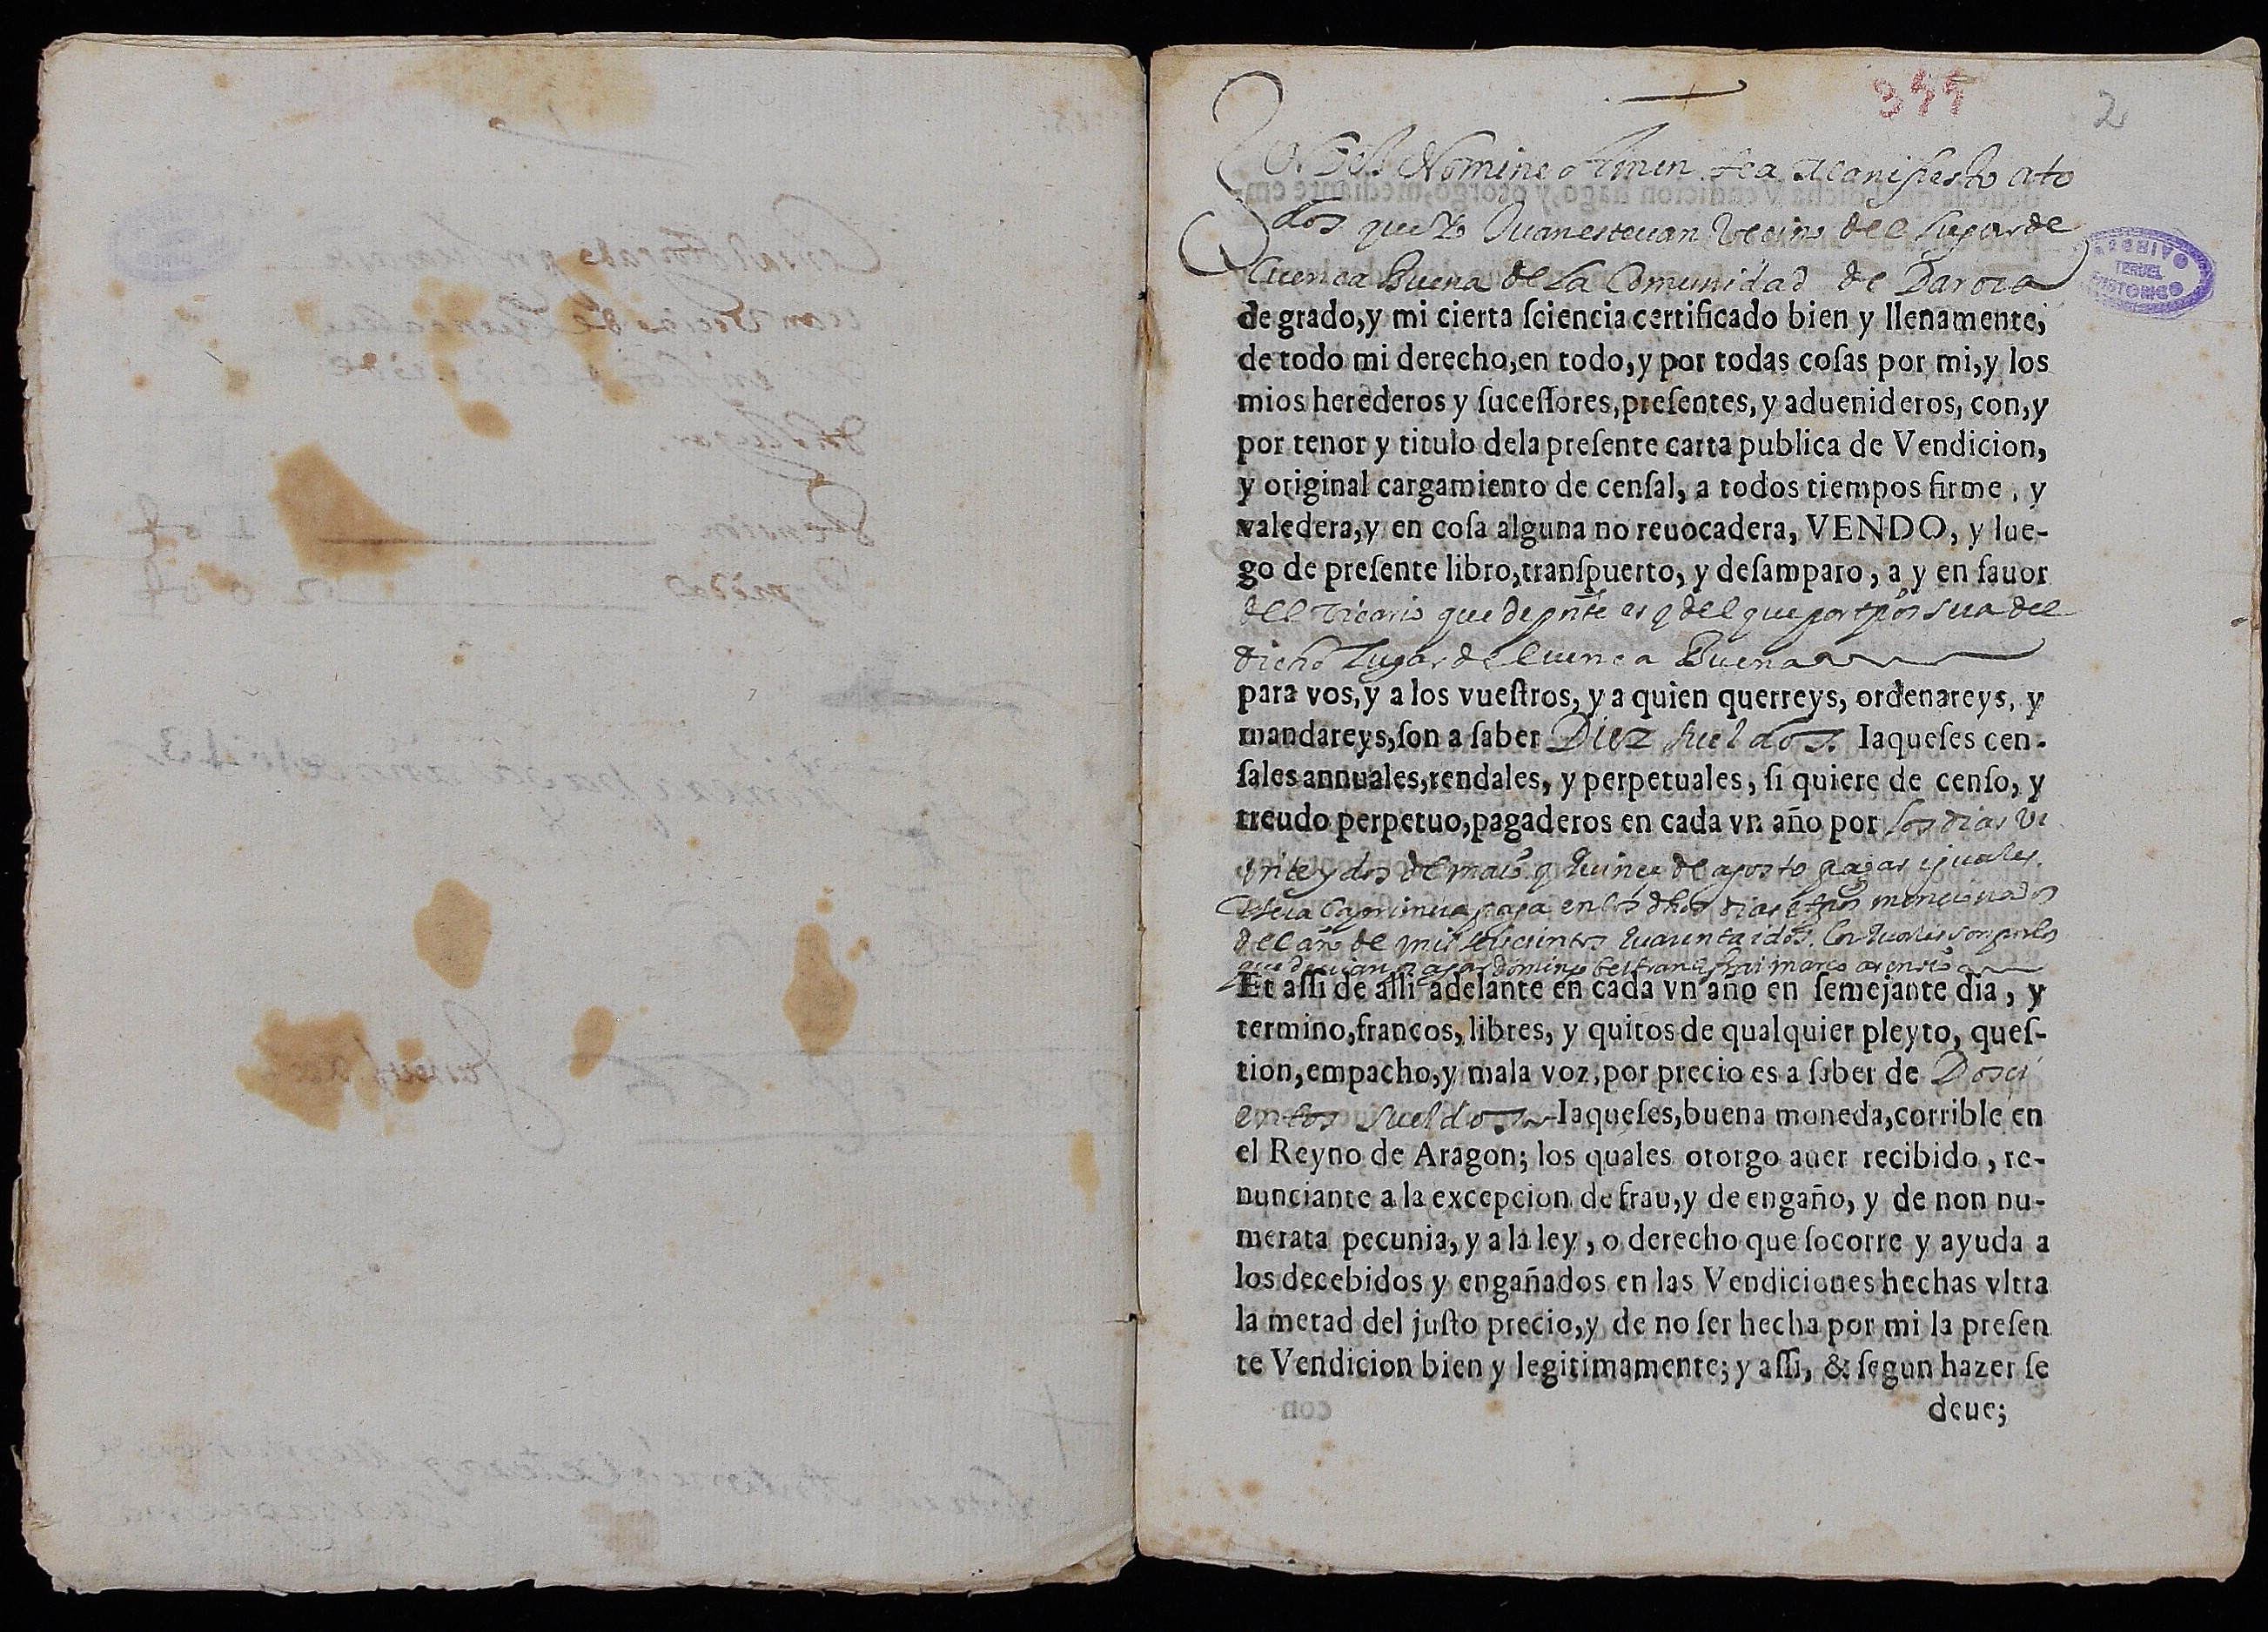 399
2
In Dei Nomine Amen. sea Manifiesto a to
dos que Yo Juan esteuan Vecino del lugar de
Cuenca Buena de la Comunidad de Daroca
de grado, y mi cierta ſciencia certificado bien y llenamente,
de todo mi derecho, en todo, y por todas coſas por mi, y los
mios herederos y ſuceſſores, preſentes, y aduenideros, con, y
por tenor y titulo dela preſente carta publica de Vendicion,
y original cargamiento de cenſal, a todos tiempos firme, y
valedera, y en coſa alguna no reuocadera, VENDO, y lue-
go de preſente libro, tranſpuerto, y deſamparo, a y en fauor
del Vicario que de pnte es y del que por tpo sera del
dicho Lugar de Cuenca Buena
para vos, y a los vueſtros, y a quien querreys, ordenareys, y
mandareys, ſon a ſaber Diez sueldos Iaqueſes cen-
ſales annuales, rendales, y perpetuales, ſi quiere de cenſo, y
treudo perpetuo, pagaderos en cada vn año por los dias ve
inte y dos de maio y quince de agosto pagas iguales.
la primera paga en los dhos dias mencionados
del año de mil seiscientos quarenta i dos. los quales son por los
que deuian pagar domingo beltran
Et aſſi de alli adelante en cada vn año en ſemejante dia, y
termino, francos, libres, y quitos de qualquier pleyto, queſ-
tion, empacho, y mala voz, por precio es a ſaber de Dosci
entos sueldos Iaqueſes, buena moneda, corrible en
el Reyno de Aragon; los quales otorgo auer recibido, re-
nunciante a la excepcion de frau, y de engaño, y de non nu-
merata pecunia, y a la ley, o derecho que ſocorre y ayuda a
los decebidos y engañados en las Vendiciones hechas vltra
la metad del juſto precio, y de no ſer hecha por mi la preſen
te Vendicion bien y legitimamente; y aſſi, & ſegun hazer ſe
deue;
ARCHIVO
TERUEL
HISTORICO